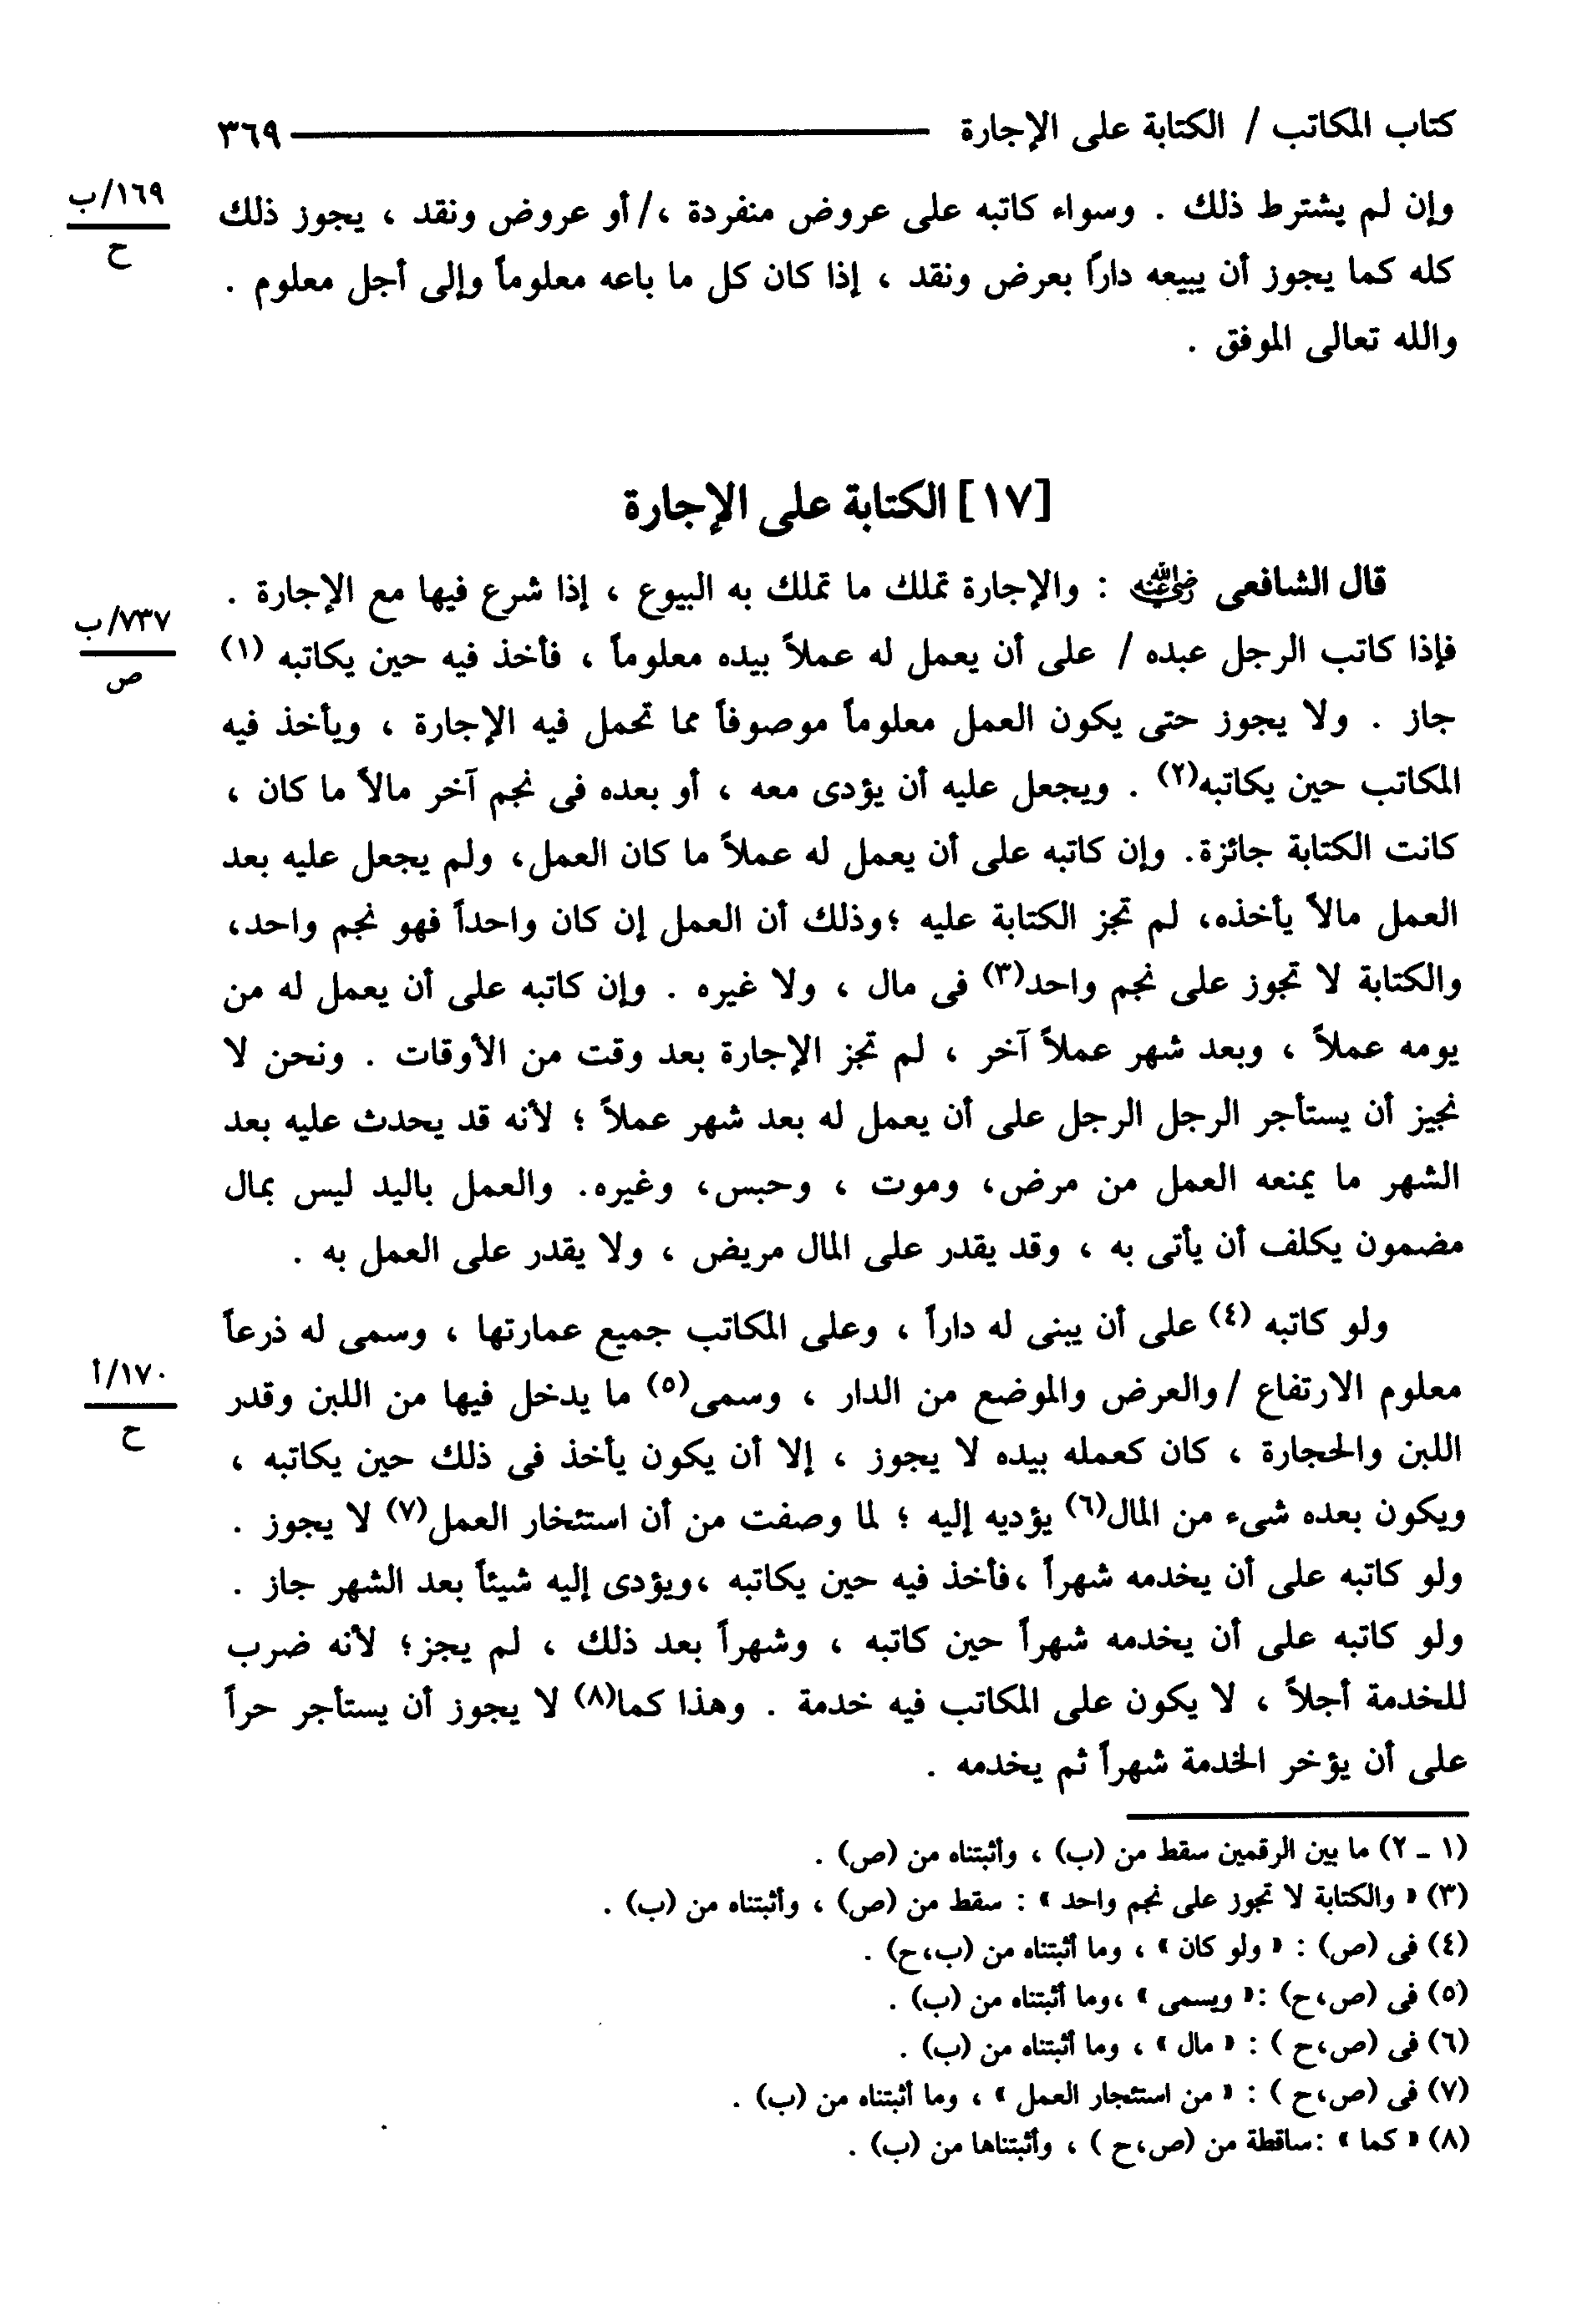 كتاب المكاتب / الكتابة على الإجارة ٣٦٩
١٦٩/ب
ح
وإن لم يشترط ذلك . وسواء كاتبه على عروض منفردة ،/أو عروض ونقد ، يجوز ذلك
كله كما يجوز أن يبيعه داراً بعرض ونقد ، إذا كان كل ما باعه معلوماً وإلى أجل معلوم .
والله تعالى الموفق .
[١٧] الكتابة على الإجارة
قال الشافعى رضي الله عنه : والإجارة تملك ما تملك به البيوع ، إذا شرع فيها مع الإجارة .
٧٣٧/ب
ص
فإذا كاتب الرجل عبده / على أن يعمل له عملاً بيده معلوماً ، فأخذ فيه حين يكاتبه (١)
جاز . ولا يجوز حتى يكون العمل معلوماً موصوفاً مما تحمل فيه الإجارة ، ويأخذ فيه
المكاتب حين يكاتبه(٢) . ويجعل عليه أن يؤدى معه ، أو بعده فى نجم آخر مالاً ما كان ،
كانت الكتابة جائزة. وإن كاتبه على أن يعمل له عملاً ما كان العمل، ولم يجعل عليه بعد
العمل مالاً يأخذه، لم تجز الكتابة عليه ؛وذلك أن العمل إن كان واحداً فهو نجم واحد،
والكتابة لا تجوز على نجم واحد(٣) فى مال ، ولا غيره . وإن كاتبه على أن يعمل له من
يومه عملاً ، وبعد شهر عملاً آخر ، لم تجز الإجارة بعد وقت من الأوقات . ونحن لا
نجيز أن يستأجر الرجل الرجل على أن يعمل له بعد شهر عملاً ؛ لأنه قد يحدث عليه بعد
الشهر ما يمنعه العمل من مرض، وموت ، وحبس، وغيره. والعمل باليد ليس بمال
مضمون يكلف أن يأتى به ، وقد يقدر على المال مريض ، ولا يقدر على العمل به .
ولو كاتبه (٤) على أن يبنى له داراً ، وعلى المكاتب جميع عمارتها ، وسمى له ذرعاً
١٧٠/أ
ح
معلوم الارتفاع /والعرض والموضع من الدار ، وسمى(٥) ما يدخل فيها من اللبن وقدر
اللبن والحجارة ، كان كعمله بيده لا يجوز ، إلا أن يكون يأخذ فى ذلك حين يكاتبه ،
ويكون بعده شىء من المال(٦) يؤديه إليه ؛ لما وصفت من أن استئخار العمل(٧) لا يجوز .
ولو كاتبه على أن يخدمه شهراً ،فأخذ فيه حين يكاتبه ،ويؤدى إليه شيئاً بعد الشهر جاز .
ولو كاتبه على أن يخدمه شهراً حين كاتبه ، وشهراً بعد ذلك ، لم يجز؛ لأنه ضرب
للخدمة أجلاً ، لا يكون على المكاتب فيه خدمة . وهذا كما(٨) لا يجوز أن يستأجر حراً
على أن يؤخر الخدمة شهراً ثم يخدمه .
(١ ـ ٢) ما بين الرقمين سقط من (ب) ، وأثبتناه من (ص) .
(٣) « والكتابة لا تجوز على نجم واحد » : سقط من (ص) ، وأثبتناه من (ب) .
(٤) فى (ص) : « ولو كان » ، وما أثبتناه من (ب،ح) .
(٥) فى (ص،ح) :« ويسمى » ،وما أثبتناه من (ب) .
(٦) فى (ص،ح ) : « مال » ، وما أثبتناه من (ب) .
(٧) فى (ص،ح ) : « من استئجار العمل » ، وما أثبتناه من (ب) .
(٨) « كما » :ساقطة من (ص،ح ) ، وأثبتناها من (ب) .